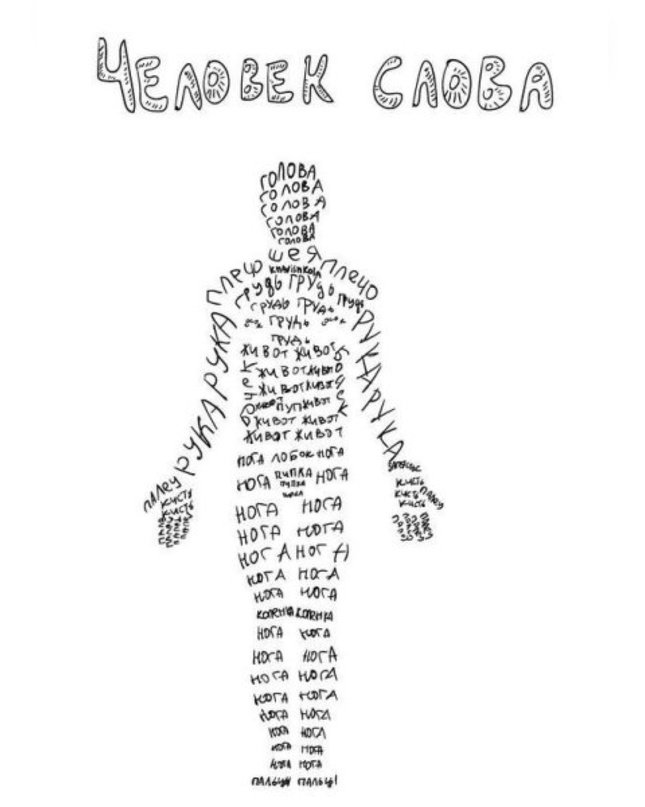 ЧЕЛОВЕК СЛОВА
ГОЛОВА
ГОЛОВА
ГОЛОВА
ГОЛОВА
ГОЛОВА
ГОЛОВА
ШЕЯ
ПЛЕЧО ПЛЕЧО
ГРУДЬ ГРУДЬ
ГРУДЬ ГРУДЬ ГРУДЬ
ГРУДЬ
ГРУДЬ
РУКА РУКА РУКА РУКА
ЖИВОТ ЖИВОТ
ЖИВОТ ЖИВОТ
ЖИВОТ ЖИВОТ
ЖИВОТ ПУП ЖИВОТ
ЖИВОТ ЖИВОТ
ЖИВОТ ЖИВОТ
БОК БОК
НОГА ЛОБОК НОГА
НОГА ПИПКА НОГА
ПИПКА
ПАЛЕЦ
КИСТЬ
КИСТЬ
ЗАПЯСТЬЕ
КИСТЬ
КИСТЬ ПАЛЕЦ
КИСТЬ
НОГА НОГА
НОГА НОГА
НОГА НОГА
НОГА НОГА
НОГА НОГА
КОЛЕНКА КОЛЕНКА
НОГА НОГА
НОГА НОГА
НОГА НОГА
НОГА НОГА
НОГА НОГА
НОГА НОГА
НОГА НОГА
НОГА НОГА
ПАЛЬЦЫ ПАЛЬЦЫ